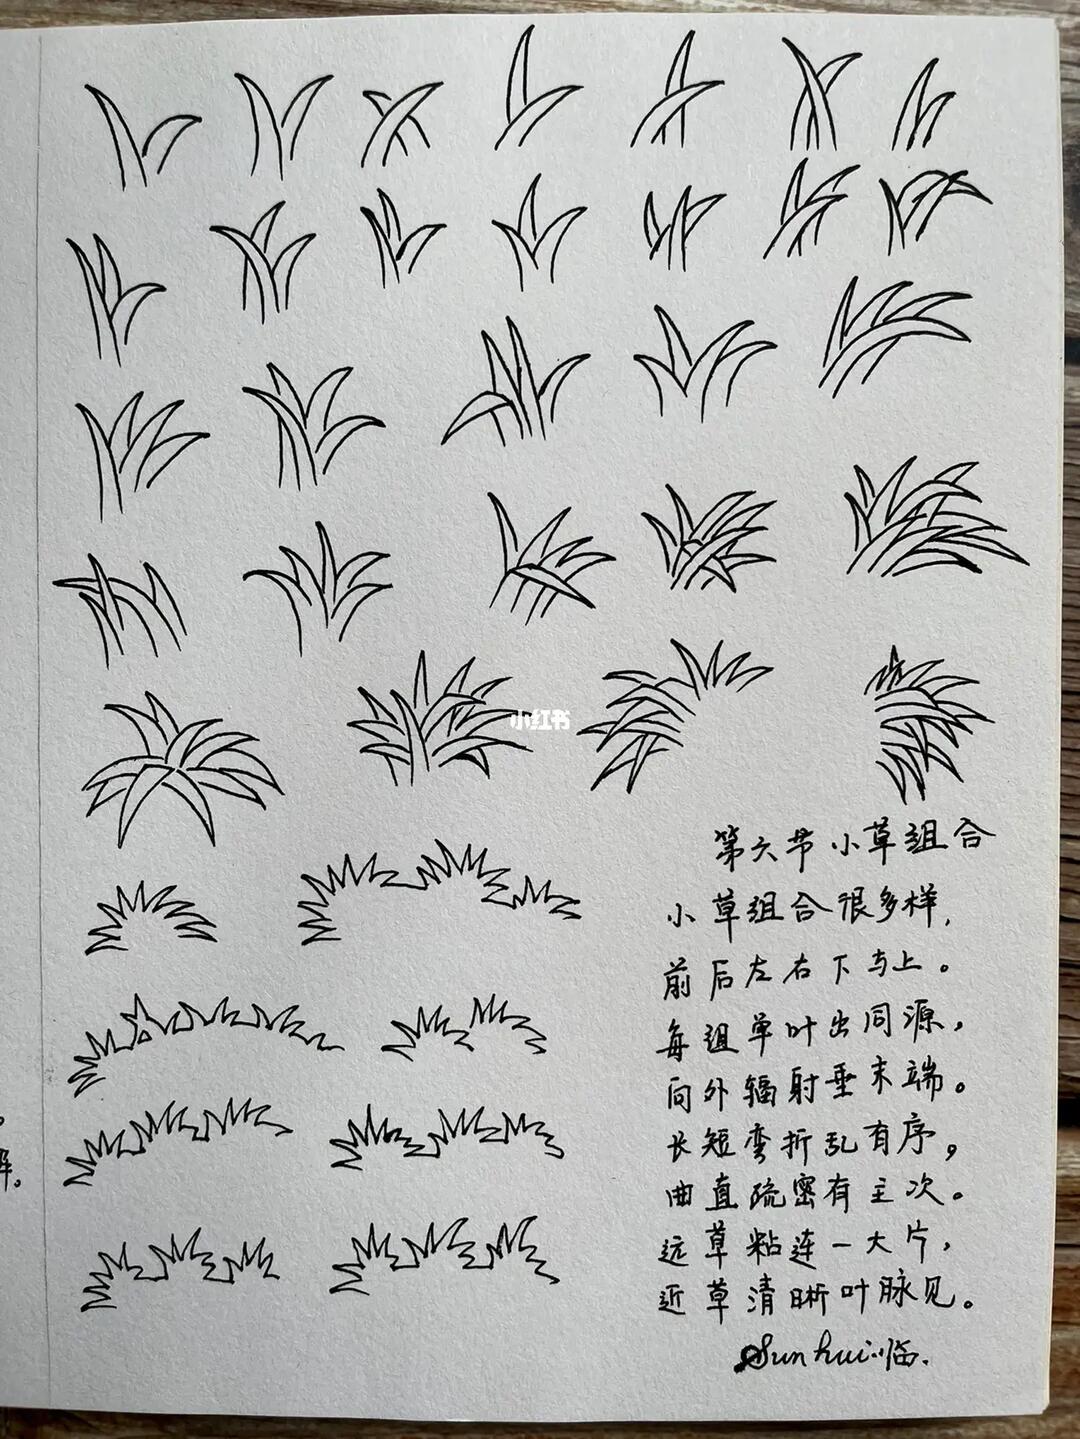 小红书
第六节小草组合
小草组合很多样,
前后左右下与上。
每组单叶出同源,
向外辐射垂末端。
长短弯折乱有序,
曲直疏密有主次。
远草粘连一大片,
近草清晰叶脉见。
Sunhui..临.